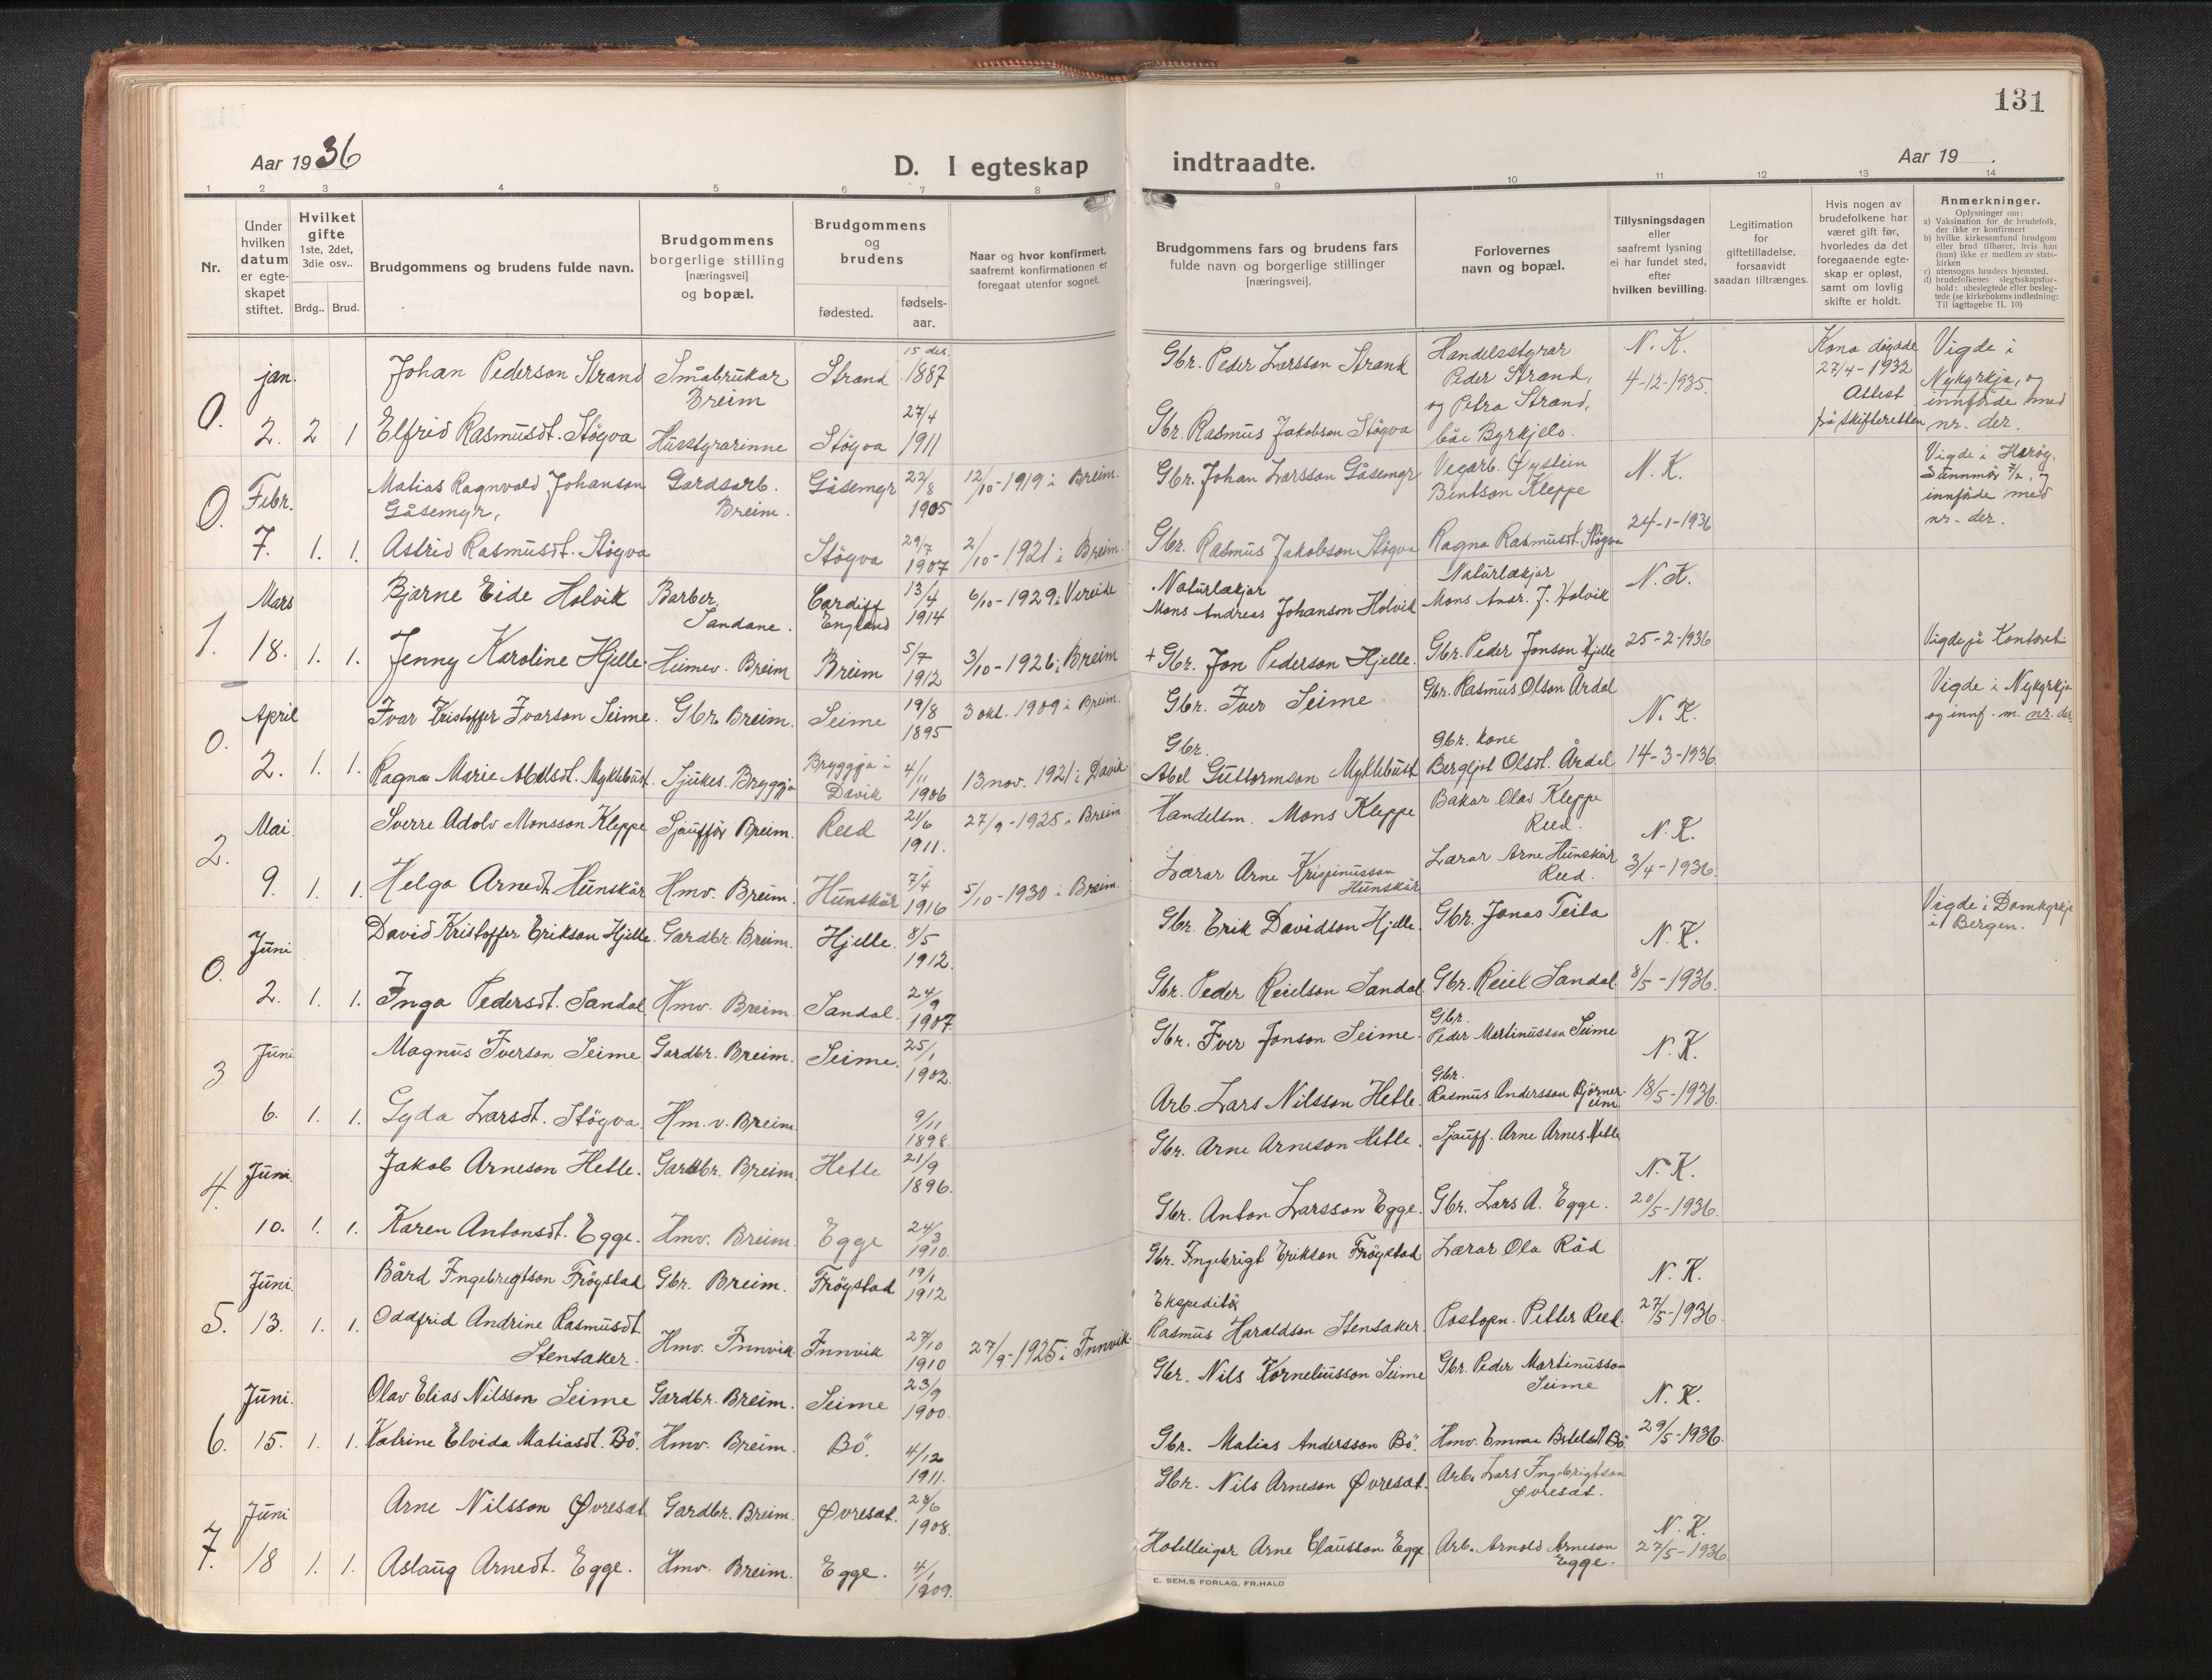 131
Aar 1936
D. I egteskap indtraadte.
Aar 19 .
1 2 3 4 5 6 7 8 9 10 11 12 13 14
Nr.
Under hvilken datum er egte-skapet stiftet.
Hvilket gifte 1ste, 2det, 3die osv..
Brdg.. Brud.
Brudgommens og brudens fulde navn.
Brudgommens borgerlige stilling [næringsvei] og bopæl.
Brudgommens og brudens
fødested.
fødsels-aar.
Naar og hvor konfirmert, saafremt konfirmationen er foregaat utenfor sognet.
Brudgommens fars og brudens fars fulde navn og borgerlige stillinger [næringsvei].
Forlovernes navn og bopæl.
Tillysningsdagen eller saafremt lysning ei har fundet sted, efter hvilken bevilling.
Legitimation for giftetilladelse, forsaavidt saadan tiltrænges.
Hvis nogen av brudefolkene har været gift før, hvorledes da det foregaaende egte-skap er opløst, samt om lovlig skifte er holdt.
Anmerkninger.
Oplysninger om:
a) Vaksination for de brudefolk, der ikke er konfirmert
b) hvilke kirkesamfund brudgom eller brud tilhører, hvis han (hun) ikke er medlem av stats-kirken
c) utensogns bruders hjemsted.
d) brudefolkenes slegtsskapsfor-hold: ubeslegtede eller besleg-tede (se kirkebokens indledning: Til iagttagelse II. 10)
0. jan. Johan Pederson Strand Småbrukar Breim Strand 15 des. 1887 Gbr. Peder Larsson Strand Handelsstyrar Peder Strand, N. K. 4-12-1935. Kona døydde 27/4-1932 Attest frå skifteretten Vigde i Nykyrkja, og innførde med nr. der.
2. 2 1 Elfrid Rasmusdt. Støyva Husstyrarinne Støyva 27/4 1911 Gbr. Rasmus Jakobson Støyva og Petra Strand, båe Byrkjelo.
0. Febr. Matias Ragnvald Johanson Gåsemyr, Gardsarb. Breim. Gåsemyr 22/8 1905 12/10-1919 i Breim. Gbr. Johan Larsson Gåsemyr Vegarb. Øystein Bentson Kleppe N. K. Vigde i Herøy, 7/2, og innførde med nr. der.
7. 1. 1. Astrid Rasmusdt. Støyva Støyva 29/7 1907 2/10-1921 i Breim. Gbr. Rasmus Jakobson Støyva Ragna Rasmusdt. Støyva 24-1-1936
1. Mars Bjarne Eide Holvik Barber, Sandane. Cardiff England 13/4 1914 6/10-1929 i Vereide Naturlækjar Mons Andreas Johanson Holvik Naturlækjar Mons Andr. J. Holvik N. K.
18. 1. 1. Jenny Karoline Hjelle Heimev. Breim Breim 5/7 1912 3/10-1926 i Breim + Gbr. Jon Pederson Hjelle. Gbr. Peder Jonson Hjelle 25-2-1936 Vigde på Kontoret.
0. April Ivar Kristoffer Ivarson Seime. Gbr. Breim. Seime 19/8 1895 3 okt. 1909 i Breim. Gbr. Iver Seime Gbr. Rasmus Olson Årdal N. K. Vigde i Nykyrkja og innf. m. nr. der.
2. 1. 1. Ragna Marie Abelsdt. Myklebust. Sjukes. Bryggja Bryggja i Davik 4/11 1906 13 nov. 1921 i Davik. Gbr. Abel Guttormson Myklebust gbr. kone Bergljot Olsdt. Årdal 14-3-1936
2. Mai Sverre Adolv Monsson Kleppe Sjauffør Breim. Reed 21/6 1911. 27/9-1925 i Breim Handelsm. Mons Kleppe Bakar Olav Kleppe Reed. N. K.
9. 1. 1. Helga Arnedt. Hunskår Hmv. Breim. Hunskår 7/4 1916 5/10-1930 i Breim. Lærar Arne Krispinusson Hunskår Lærar Arne Hunskår Reed. 3/4-1936.
0. Juni David Kristoffer Erikson Hjelle. Gardbr. Breim. Hjelle. 8/5 1912. Gbr. Erik Davidson Hjelle. Gbr. Jonas Teita N. K. Vigde i Domkyrkja i Bergen.
2. 1. 1. Inga Pedersdt. Sandal Hmv. Breim. Sandal. 24/9 1907. Gbr. Peder Reielson Sandal Gbr. Reiel Sandal 8/5-1936.
3 Juni Magnus Iverson Seime Gardbr. Breim. Seime. 25/1 1902. Gbr. Iver Jonson Seime. Gbr. Peder Martinusson Seime N. K.
6. 1. 1. Gyda Larsdt. Støyva. Hm.v. Breim. 9/11 1898. Arb. Lars Nilsson Hetle. Gbr. Rasmus Andersson Bjørnereim. 18/5-1936.
4. Juni. Jakob Arneson Hetle. Gardbr. Breim. Hetle 21/9 1896. Gbr. Arne Arneson Hetle. Sjauff. Arne Arnes. Hetle N. K.
10. 1. 1. Karen Antonsdt. Egge. Hmv. Breim. Egge 24/3 1910. Gbr. Anton Larsson Egge. Gbr. Lars A. Egge. 20/5-1936.
5. Juni. Bård Ingebrigtson Frøystad Gbr. Breim. Frøystad 19/1 1912 Gbr. Ingebrigt Erikson Frøystad Lærar Ola Råd N. K.
13. 1. 1. Oddfrid Andrine Rasmusdt. Stensaker. Hmv. Innvik Innvik 27/10 1910 27/9-1925 i Innvik. Ekspeditør Rasmus Haraldson Stensaker. Postopn. Petter Reed. 27/5-1936.
6. Juni. Olav Elias Nilsson Seime Gardbr. Breim. Seime 23/9 1900. Gbr. Nils Korneliusson Seime Gbr. Peder Martinusson Seime N. K.
15. 1. 1. Katrine Elvida Matiasdt. Bø. Hmv. Breim. Bø. 4/12 1911. Gbr. Matias Andersson Bø. Hmv. Emma Bø 29/5-1936.
7. Juni Arne Nilsson Øvreset Gardbr. Breim. Øvreset. 28/6 1908. Gbr. Nils Arneson Øvreset. Arb. Lars Ingebrigtson Øvreset. N. K.
18 1. 1. Aslaug Arnedt. Egge. Hmv. Breim. Egge. 4/1 1909. Hotelleigar Arne Clausson Egge Arb. Arnold Arneson Egge. 27/5-1936
E. SEM,S FORLAG, FR.HALD